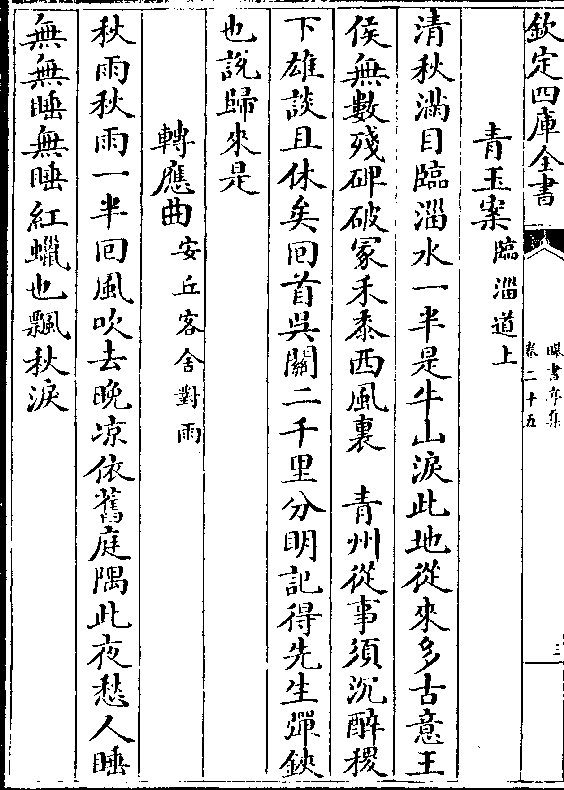 欽定四庫全書
曝書亭集
卷二十五
三
青玉案臨淄道上
清秋滿目臨淄水一半是牛山淚此地從來多古意王
侯無數殘碑破冢禾黍西風裏　青州從事須沉醉稷
下雄談且休矣回首吳關二千里分明記得先生彈鋏
也說歸來是
轉應曲安丘客舍對雨
秋雨秋雨一半回風吹去晚凉依舊庭隅此夜愁人睡
無無睡無睡紅蠟也飄秋淚